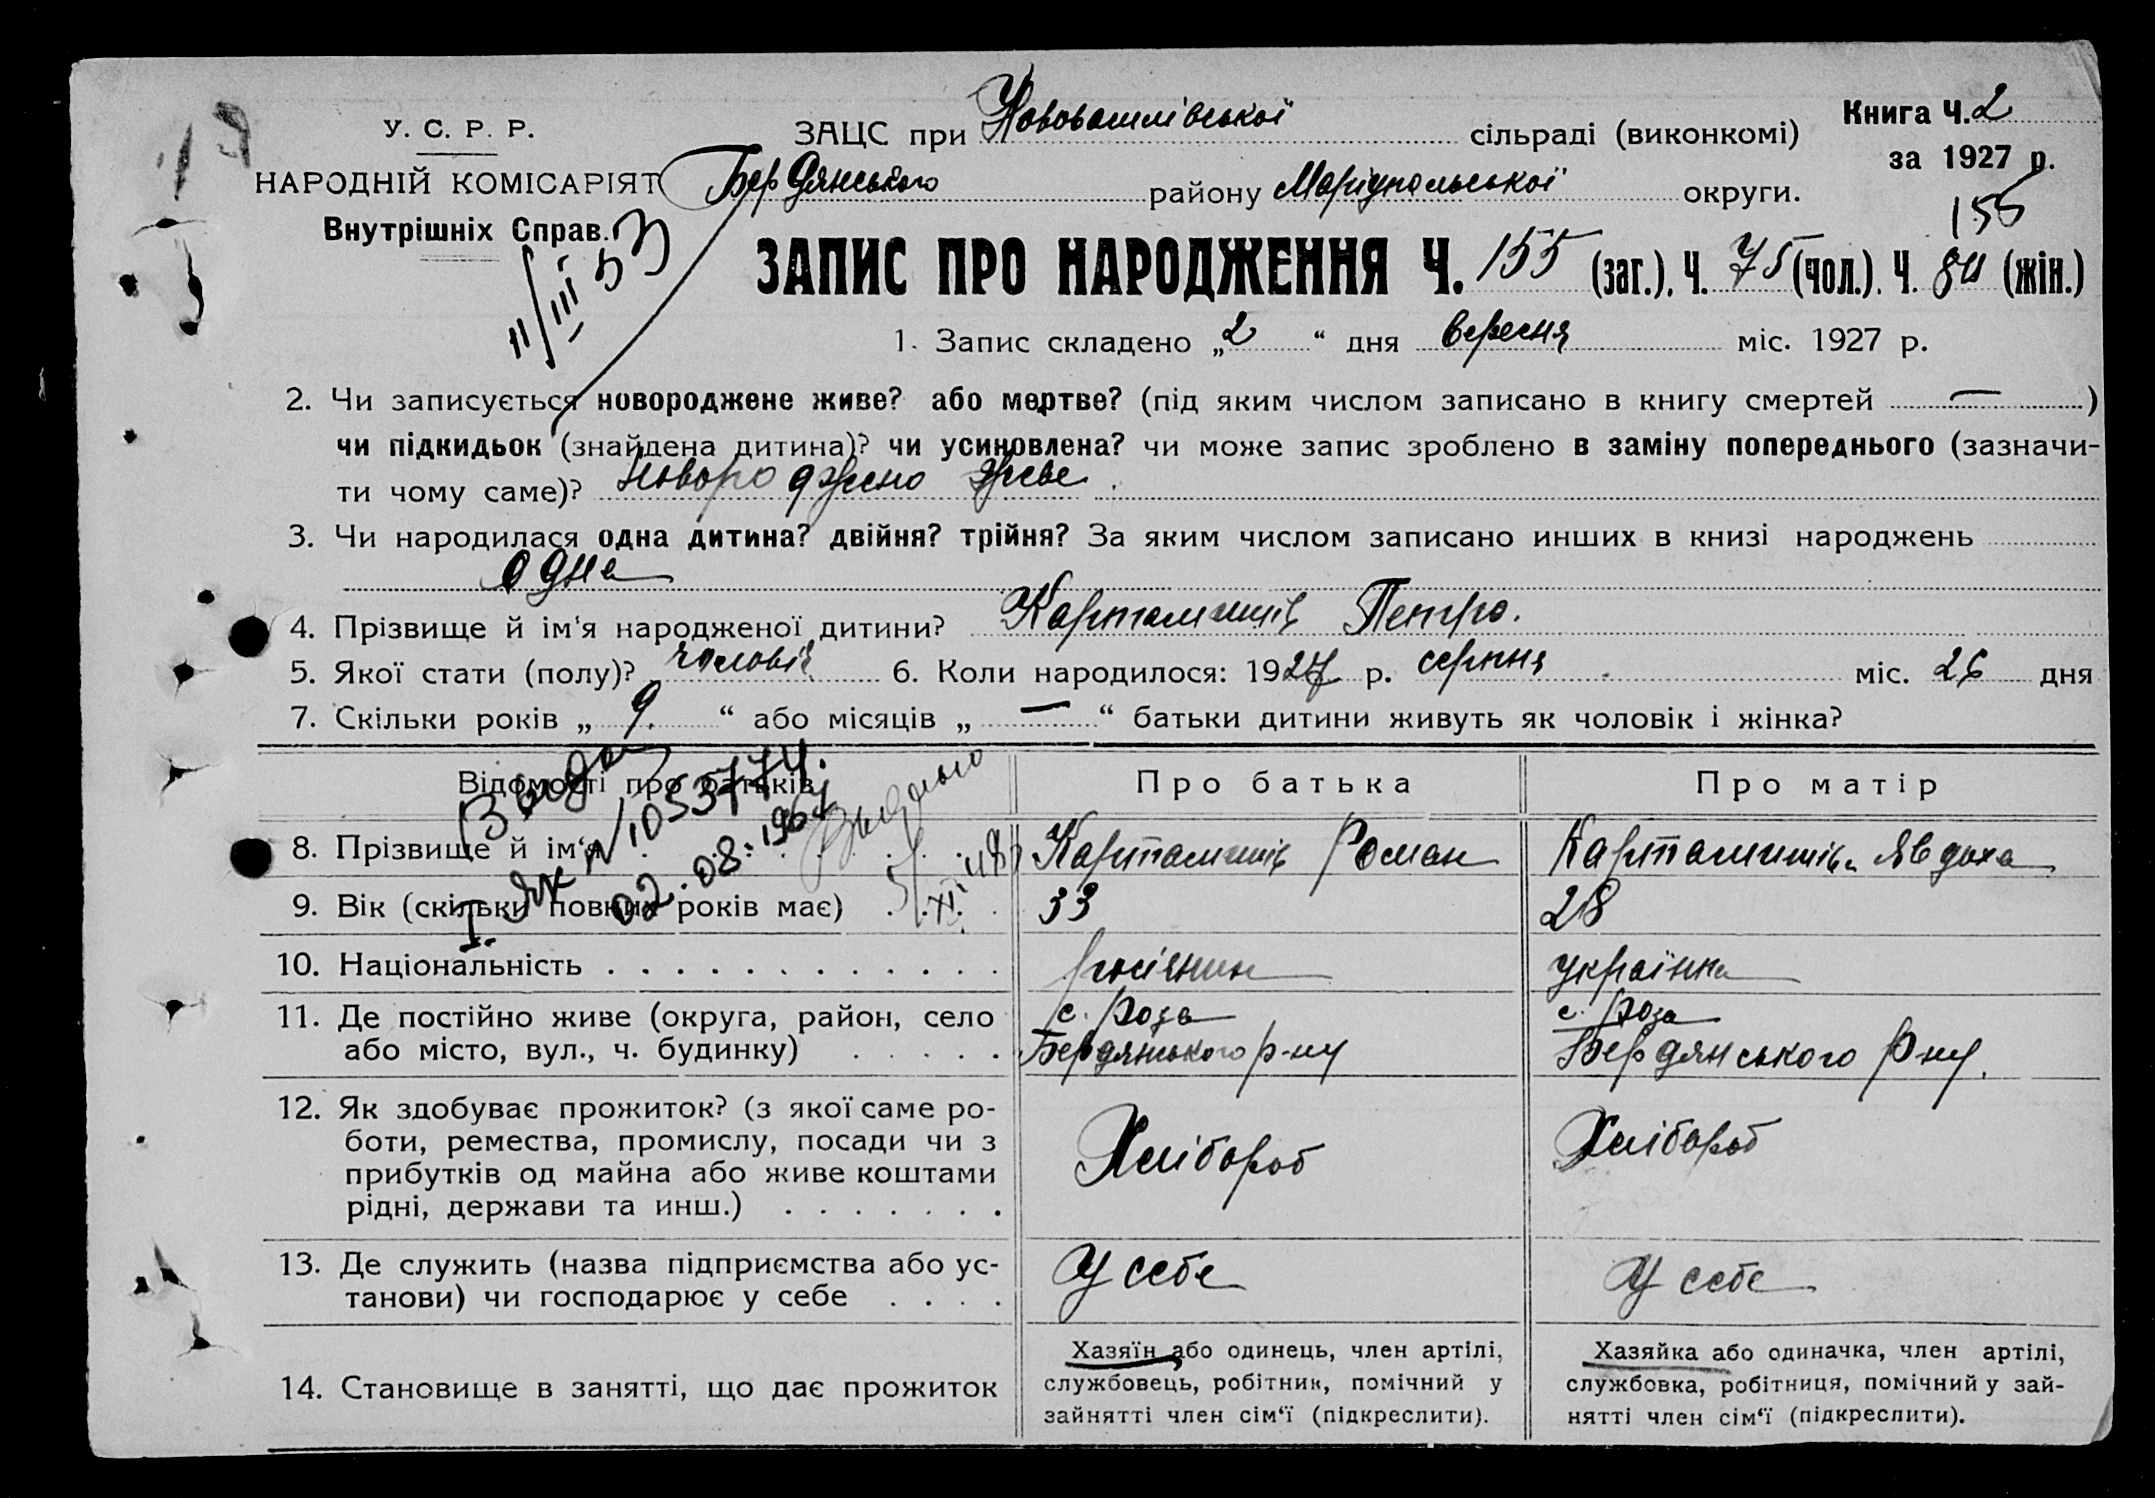 У. С. Р. Р.
НАРОДНІЙ КОМІСАРІЯТ
Внутрішніх Справ.
ЗАЦС при Нововасилівської сільраді (виконкомі)
Бердянського району Маріупольської округи.
Книга Ч. 2
за 1927 р.
155
11/III 53
ЗАПИС ПРО НАРОДЖЕННЯ Ч. 155 (заг.). Ч. 75 (чол.). Ч. 80 (жін.)
1. Запис складено „2“ дня вересня міс. 1927 р.
2. Чи записується новороджене живе? або мертве? (під яким числом записано в книгу смертей —)
чи підкидьок (знайдена дитина)? чи усиновлена? чи може запис зроблено в заміну попереднього (зазначи-
ти чому саме)? Новороджено живе.
3. Чи народилася одна дитина? двійня? трійня? За яким числом записано инших в книзі народжень
одна
4. Прізвище й ім'я народженої дитини? Картамишів Петро.
5. Якої стати (полу)? чоловік 6. Коли народилося: 1927 р. серпня міс. 26 дня
7. Скільки років „9.“ або місяців „—“ батьки дитини живуть як чоловік і жінка?
Відомості про батьків Про батька Про матір
8. Прізвище й ім'я Картамишів Роман Картамишів Явдоха
9. Вік (скільки повних років має) 33 28
10. Національність росіянин українка
11. Де постійно живе (округа, район, село с. Роза с. Роза
або місто, вул., ч. будинку) Бердянського р-ну Бердянського р-ну.
12. Як здобуває прожиток? (з якої саме ро-
боти, ремества, промислу, посади чи з Хлібороб Хлібороб
прибутків од майна або живе коштами
рідні, держави та инш.)
13. Де служить (назва підприємства або ус- У себе У себе
танови) чи господарює у себе
14. Становище в занятті, що дає прожиток
Хазяїн або одинець, член артілі,
службовець, робітник, помічний у
зайнятті член сім'ї (підкреслити).
Хазяйка або одиначка, член артілі,
службовка, робітниця, помічний у зай-
нятті член сім'ї (підкреслити).
I ЯК N 1053774.
02.08.1967